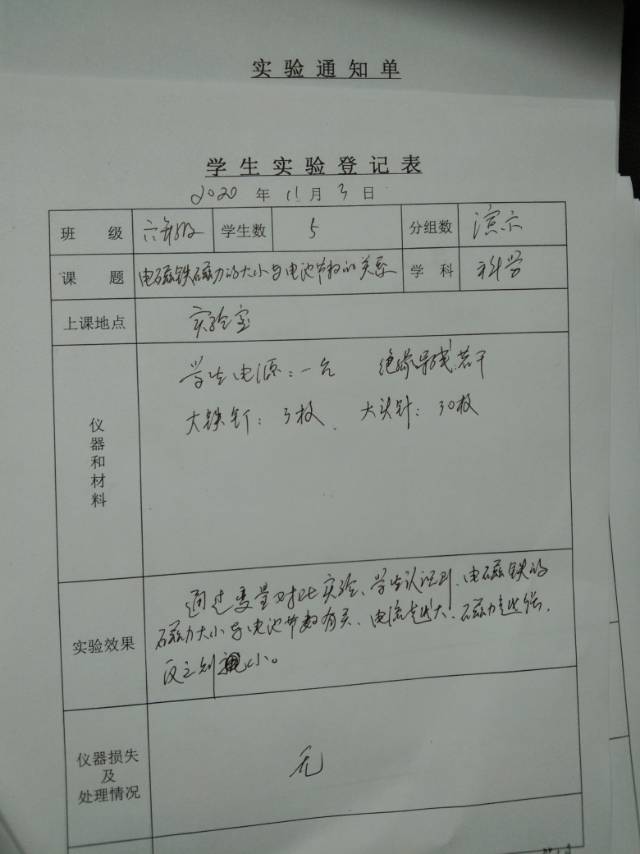 实验通知单
学生实验登记表
2020 年 11 月 3 日
班 级 六年级 学生数 5 分组数 演示
课 题 电磁铁磁力的大小与电池节数的关系 学 科 科学
上课地点 实验室
仪器和材料
学生电源：一台 绝缘导线若干
大铁钉：3枚、大头针：30枚
实验效果
通过变量对比实验、学生认识到、电磁铁的
磁力大小与电池节数有关、电流越大、磁力越强、
反之则越小。
仪器损失
及
处理情况
无